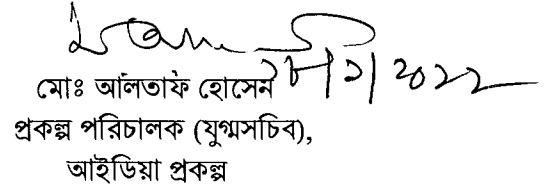 ২০২২
মোঃ আলতাফ হোসেন
প্রকল্প পরিচালক (যুগ্মসচিব),
আইডিয়া প্রকল্প